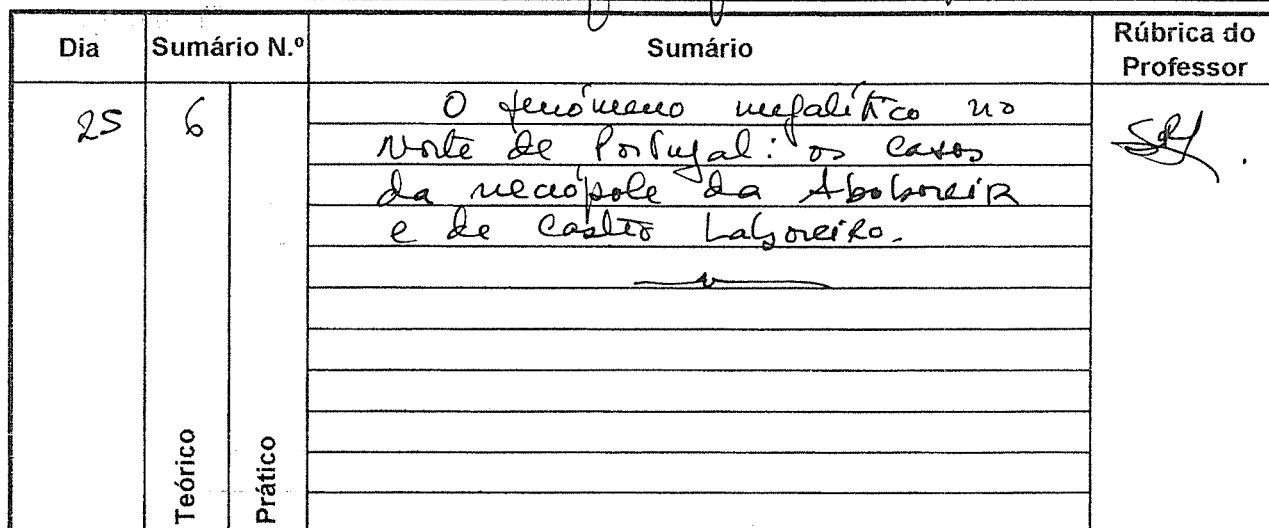 Dia Sumário N.º Sumário Rúbrica do Professor
25 6 O fenómeno megalítico no
Norte de Portugal: os casos
da necrópole da Aboboreira
e de Castro Laboreiro.
Teórico Prático